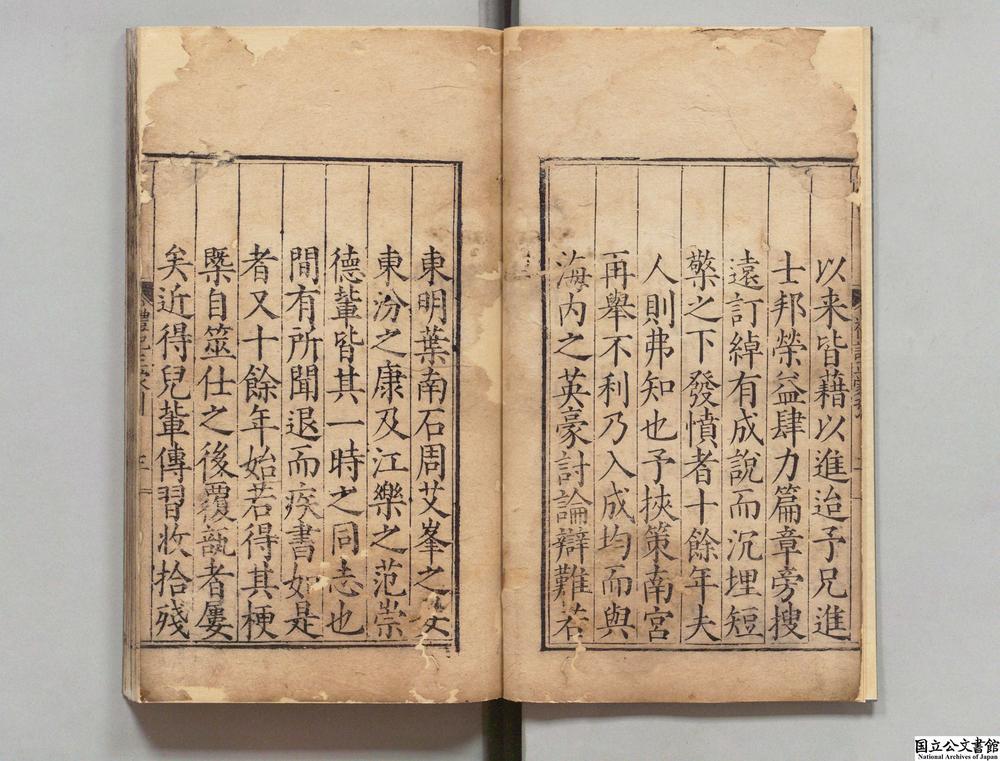 以来皆藉以進迨予兄進
士邦榮益肆力篇章旁搜
遠訂綽有成說而沉埋短
檠之下發憤者十餘年夫
人則弗知也予挾策南宮
再舉不利乃入成均而與
海内之英豪討論辯難若
東明葉南石周艾峯之
東汾之康及江樂之范崇
德輩皆其一時之同志也
間有所聞退而疾書如是
者又十餘年始若得其梗
槩自筮仕之後覆瓿者屢
矣近得兒軰傳習收拾殘
国立公文書館
National Archives of Japan